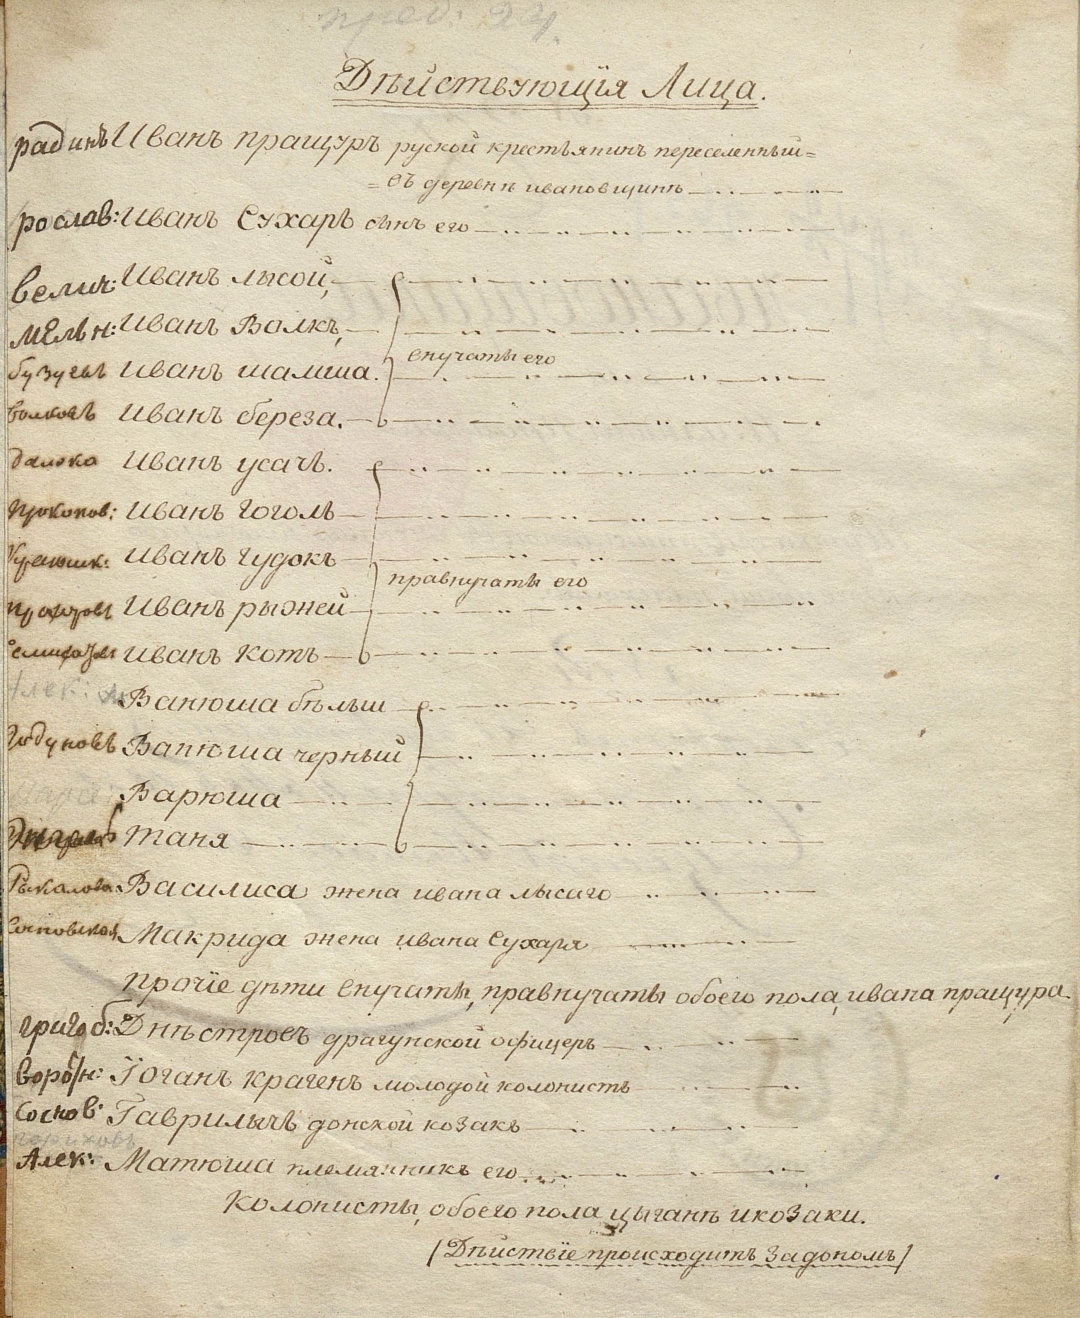 пред: 24.
Дѣйствующія Лица.
радинъ Иванъ пращуръ руской крестьянинъ переселенный=
=въ деревнѣ ивановщинѣ
рослав: Иванъ Сухарь сынъ его
велич: Иванъ лысой,
мельн: Иванъ Волкъ,
Иванъ шалаша.
внучаты его
волковъ Иванъ береза.
далока Иванъ усачь.
прокопов: Иванъ гоголь
Иванъ гудокъ
правнучаты его
Иванъ рыжей
Иванъ котъ
Алек: Ванюша бѣлый
годуновъ Ванюша черный
Варюша
Таня
Рыкалова Василиса жена ивана лысаго
Сосновская Макрида жена ивана Сухаря
прочіе дѣти внучаты, правнучаты обоего пола, ивана пращура.
григоб: Днѣстровъ драгунской офицеръ
вороб/н: Іоганъ крагенъ молодой колонистъ
Соснов: Гаврилычь донской козакъ
гориховъ
Алек: Матюша племянникъ его
Колонисты, обоего пола цыгане и козаки.
/Дѣйствіе происходитъ за дономъ/